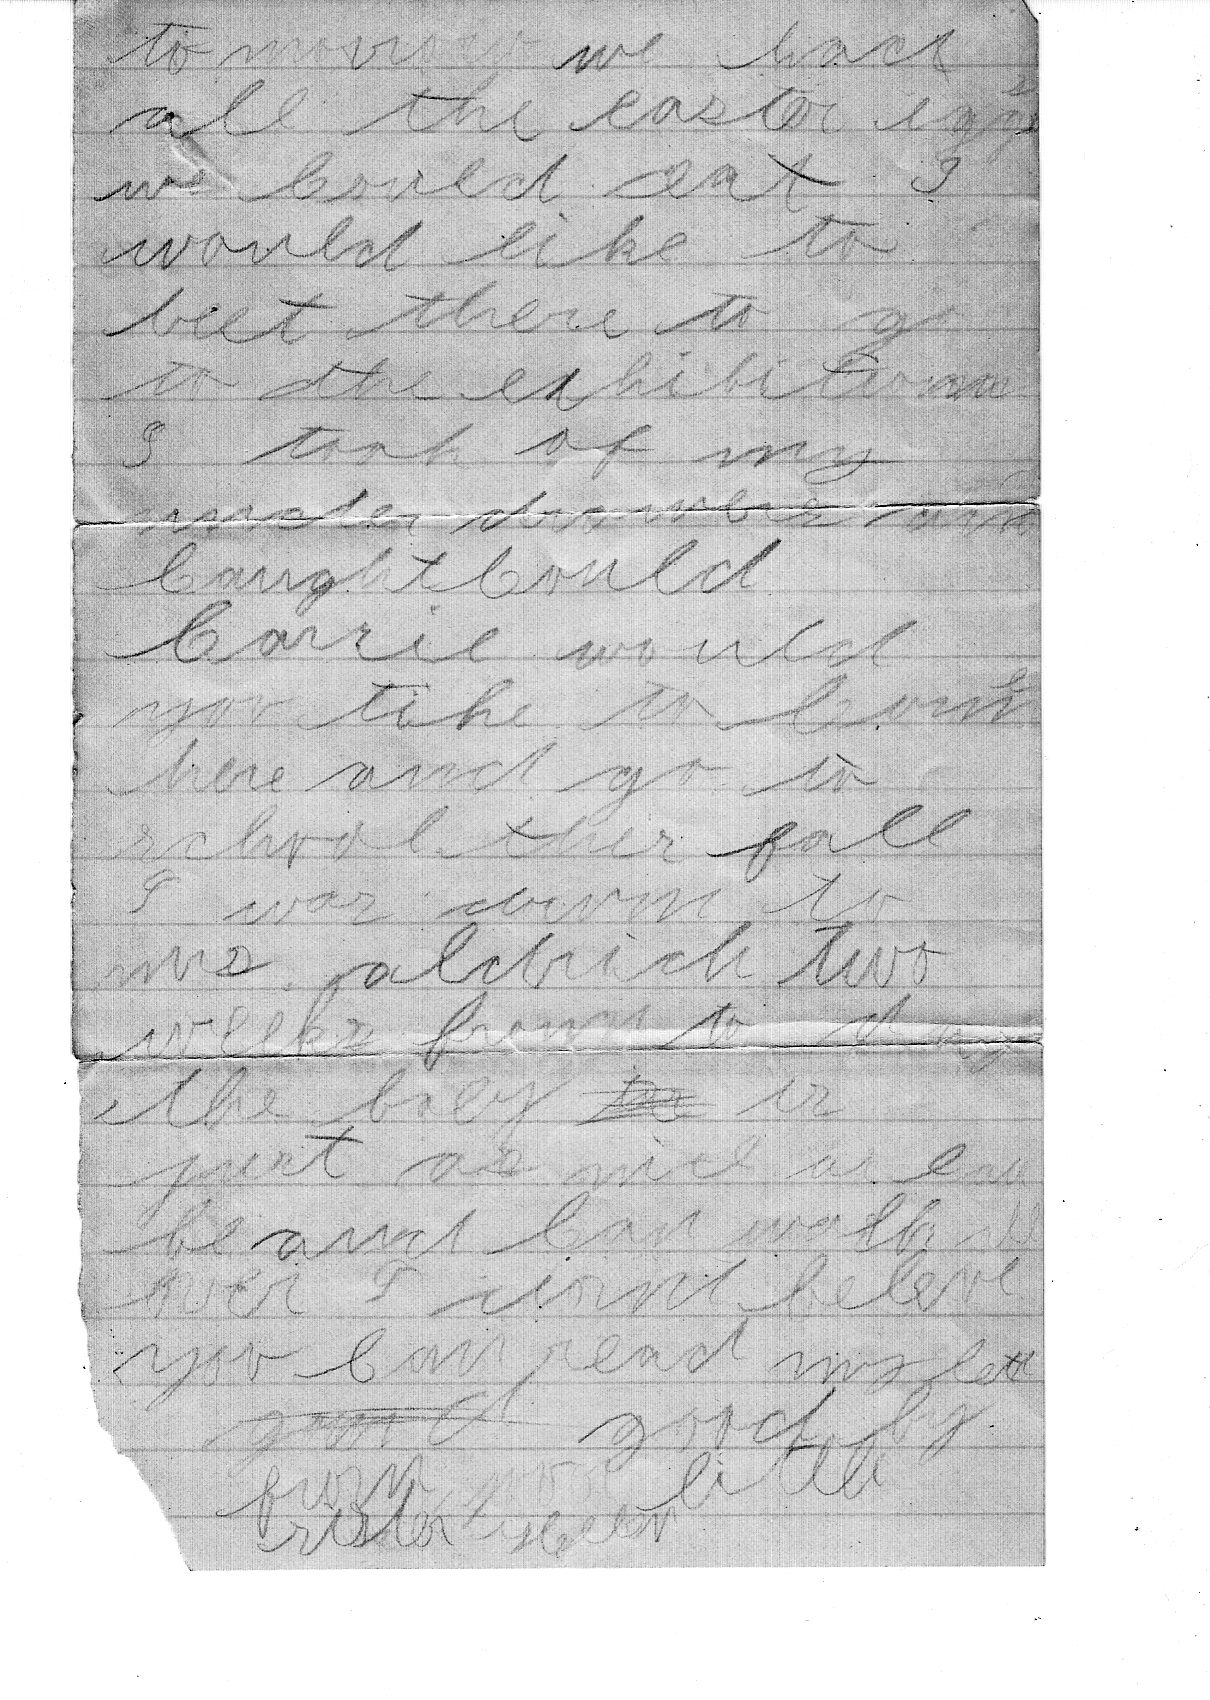 tomorrow we had
all the easter eggs
we Could eat I
would like to
beet there to go
to the exhibition
I took of my
under drawers and
Caught Could
Carrie would
you like to Come
here and go to
school ther fall
I was down to
mrs. aldrich two
weeks from to day
the baby is
just as nice as can
be and Can walk all
over I dond beleve
you Can read my lett
good by
from your little
sister Helen